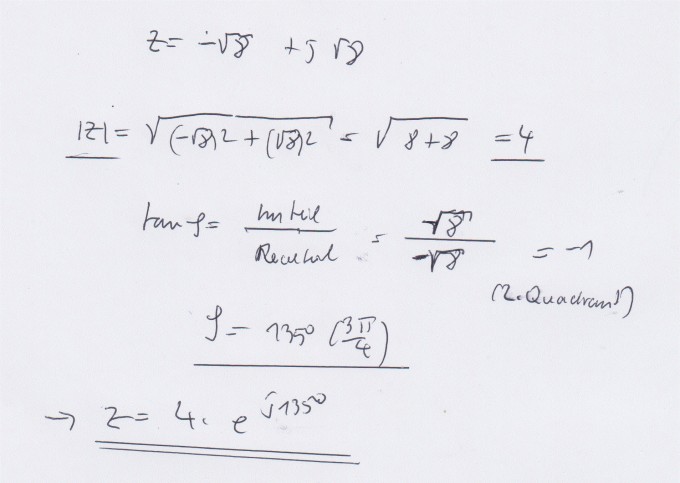 z = -√8 + j √8
|z| = √((-√8)2 + (√8)2) = √(8+8) = 4
tan φ = Im teil / Realteil = √8 / -√8 = -1
(2. Quadrant)
φ = 135° (3π/4)
→ z = 4 · e^(j135°)